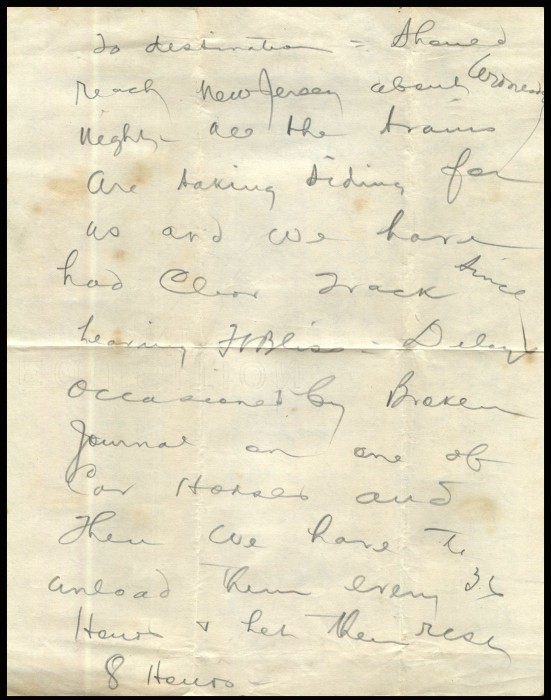 to destination = Should
reach New Jersey about Wednesday
night - all the trains
are taking siding for
us and we have
had Clear Track since
leaving Ft Bliss - Delay
occasioned by Broken
Journal on one of
Car Horses and
Then we have to
unload them every 36
Hours & let them rest
8 Hours -